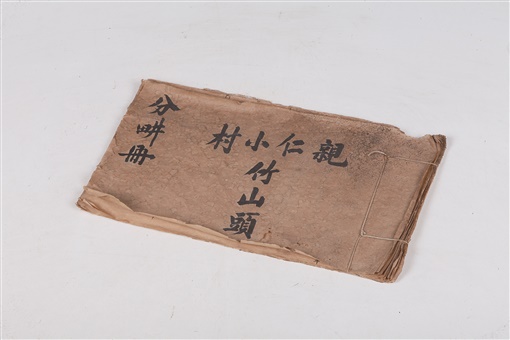 親仁小村
竹山頭
分畔冊